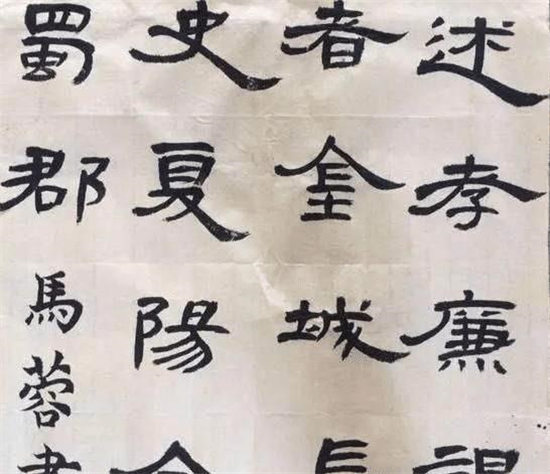 述孝廉
者金城長
史夏陽令
蜀郡
馬蓉書